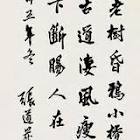 老樹昏鴉小橋
古道淒風瘦
下斷腸人在
年冬
張道